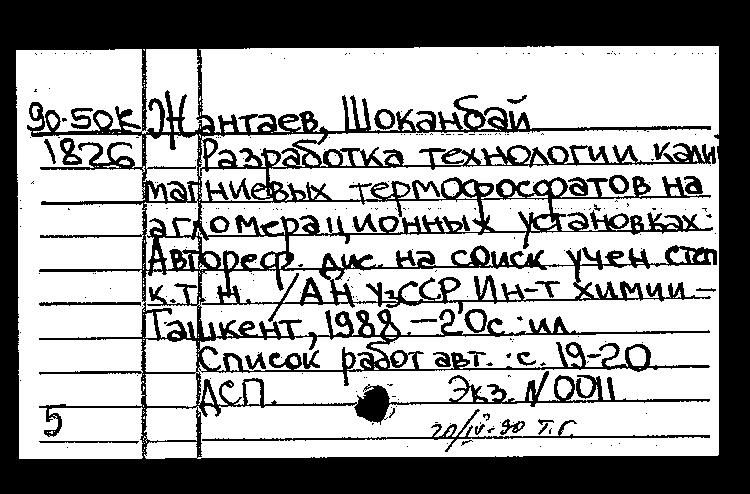 90-50К Жантаев, Шоканбай
1826 Разработка технологии кали
магниевых термофосфатов на
агломерационных установках:
Автореф. дис. на соиск учен степ
к.т.н. /АН УзССР, Ин-т химии.-
Ташкент, 1988.-20с.:ил.
Список работ авт.: с. 19-20.
ДСП. Экз. N0011
5 20/IV-90 Т.Г.